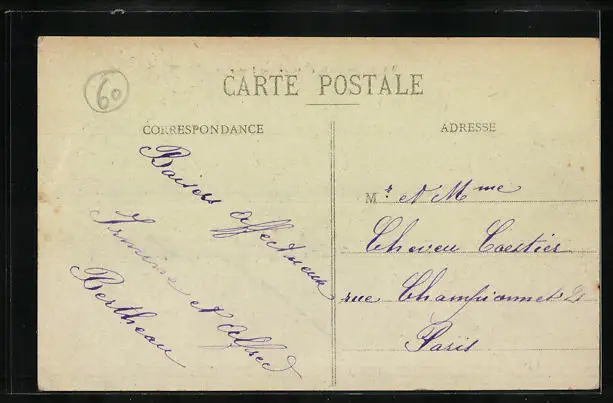 60
CARTE POSTALE
CORRESPONDANCE
ADRESSE
Baisers affectueux
Irmine et Alfred
Bertheau
Mr et Mme
Cheveu Coestier
rue Championnet 21
Paris